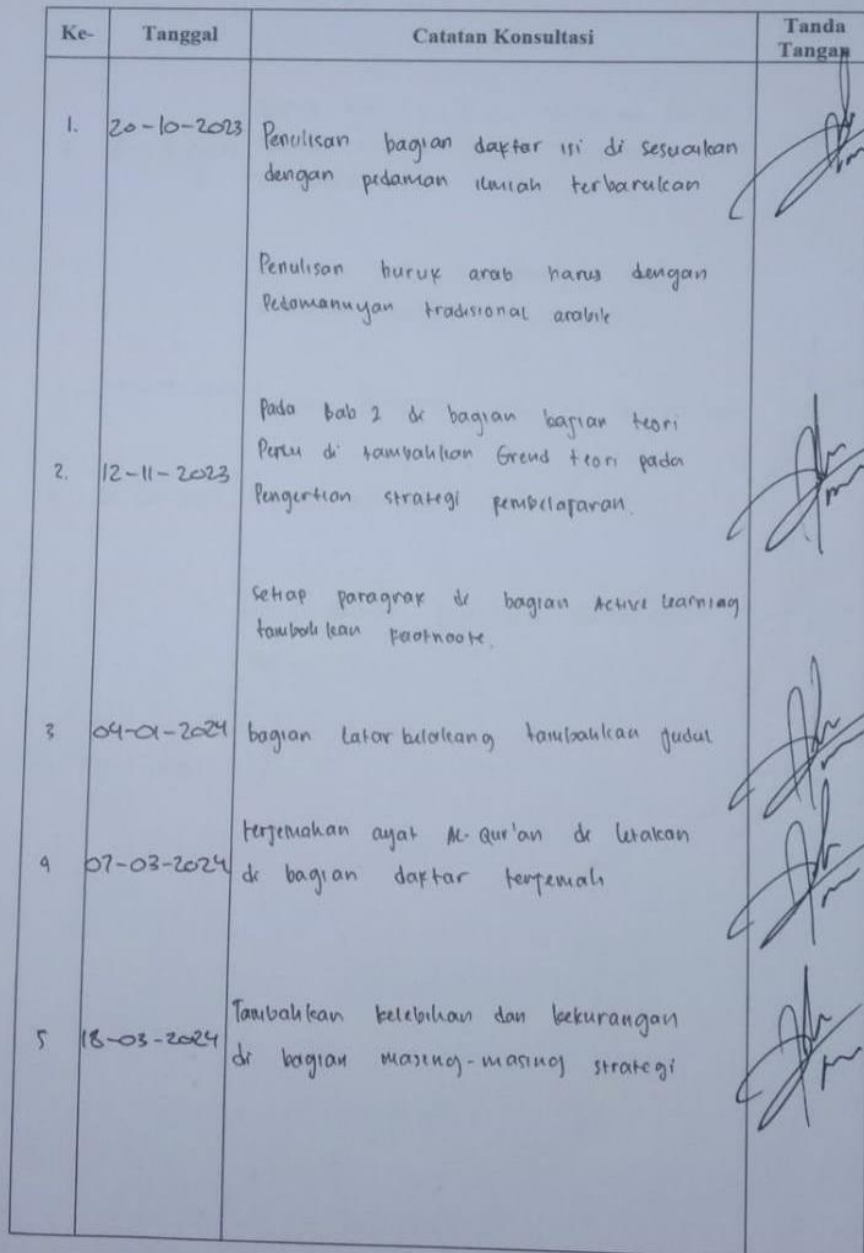 Ke- Tanggal Catatan Konsultasi Tanda Tangan
1. 20-10-2023 Penulisan bagian daftar isi di sesuaikan
dengan pedaman ilmiah terbarukan
Penulisan huruf arab harus dengan
tradisional arabik
Pada Bab 2 di bagian bagian teori
Perlu di tambahkan Grend teori pada
2. 12-11-2023 Pengertian strategi pembelajaran.
setiap paragraf di bagian Active learning
tambahkan Footnoote.
3 04-01-2024 bagian Latar belakang tambahkan judul
terjemahan ayat Al-Qur'an di letakan
4 07-03-2024 di bagian daftar terjemah
Tambahkan kelebihan dan kekurangan
5 18-03-2024 di bagian masing-masing strategi